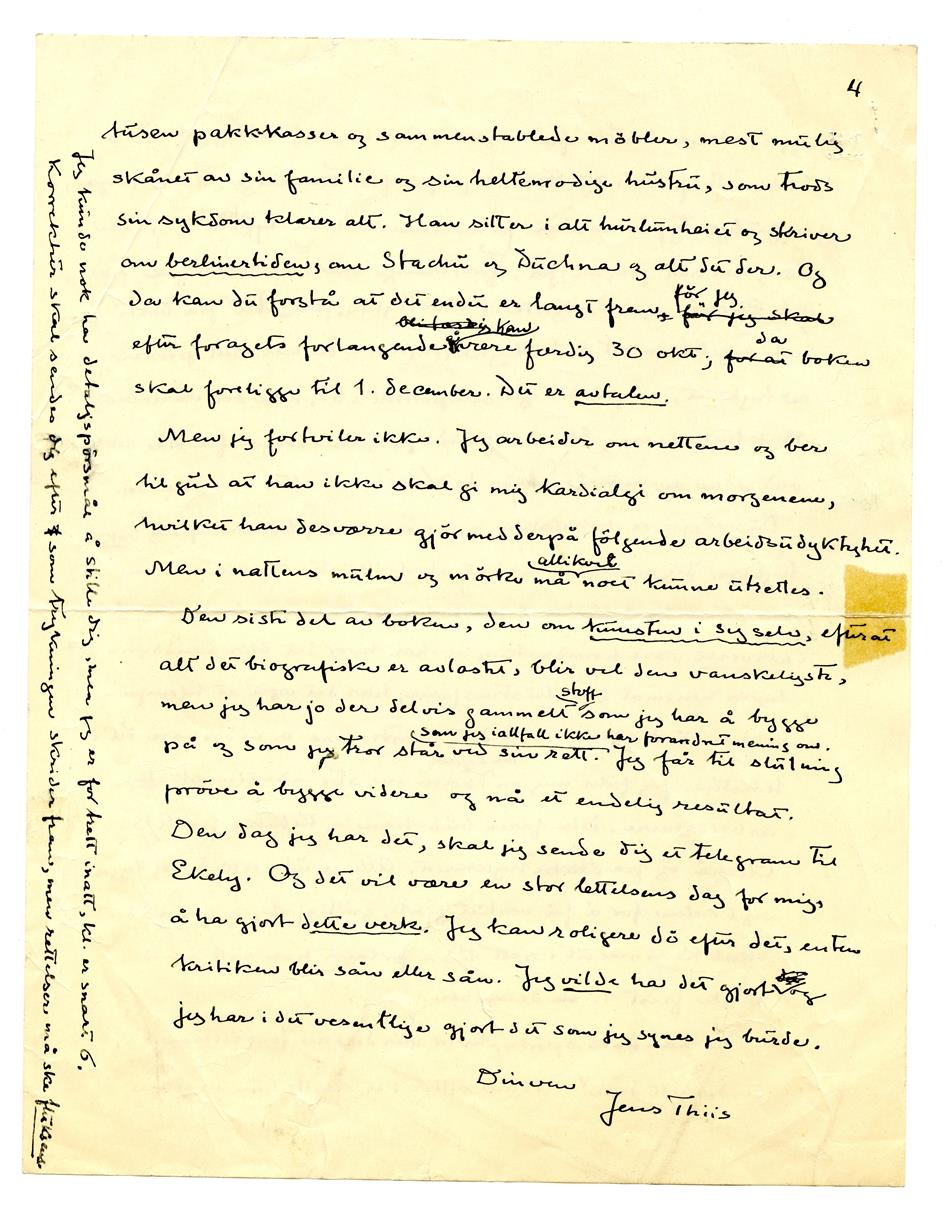 4
tusen pakk-kasser og sammenstablede möbler, mest mulig
skånet av sin familie og sin heltemodige hustru, som trods
sin sykdom klarer alt. Han sitter i alt hurlumheiet og skriver
om berlinertiden, om Stachu og Duchna og alt det der. Og
da kan du forstå at det endu er langt frem, för jeg
för jeg skal
efter foragets forlangende være færdig 30 okt; da boken
for at
skal foreligge til 1. december. Det er avtalen.
Men jeg fortviler ikke. Jeg arbeider om nettene og ber
til gud at han ikke skal gi mig kardialgi om morgenene,
hvilket han desværre gjör med derpå fölgende arbeidsudyktighet.
Men i nattens mulm og mörke må allikevel noet kunne utrettes.
Den siste del av boken, den om kunsten i sig selv, efterat
alt det biografiske er avlastet, blir vel den vanskeligste,
men jeg har jo der delvis gammelt stoff som jeg har å bygge
på og som jeg tror står ved sin rett. som jeg iallfall ikke har forandret mening om. Jeg får til slutning
pröve å bygge videre og nå et endelig resultat.
Den dag jeg har det, skal jeg sende dig et telegram til
Ekely. Og det vil være en stor lettelsens dag for mig,
å ha gjort dette verk. Jeg kan roligere dö efter det, enten
kritiken blir sån eller sån. Jeg vilde ha det gjort og
jeg har i det vesentlige gjort det som jeg synes jeg burde.
Din ven
Jens Thiis
Jeg kunde nok ha detaljspörsmål å stille dig, men jeg er for trett inatt, kl. er snart 6.
Korrektur skal sendes dig efter som trykningen skrider frem, men rettelser må ske